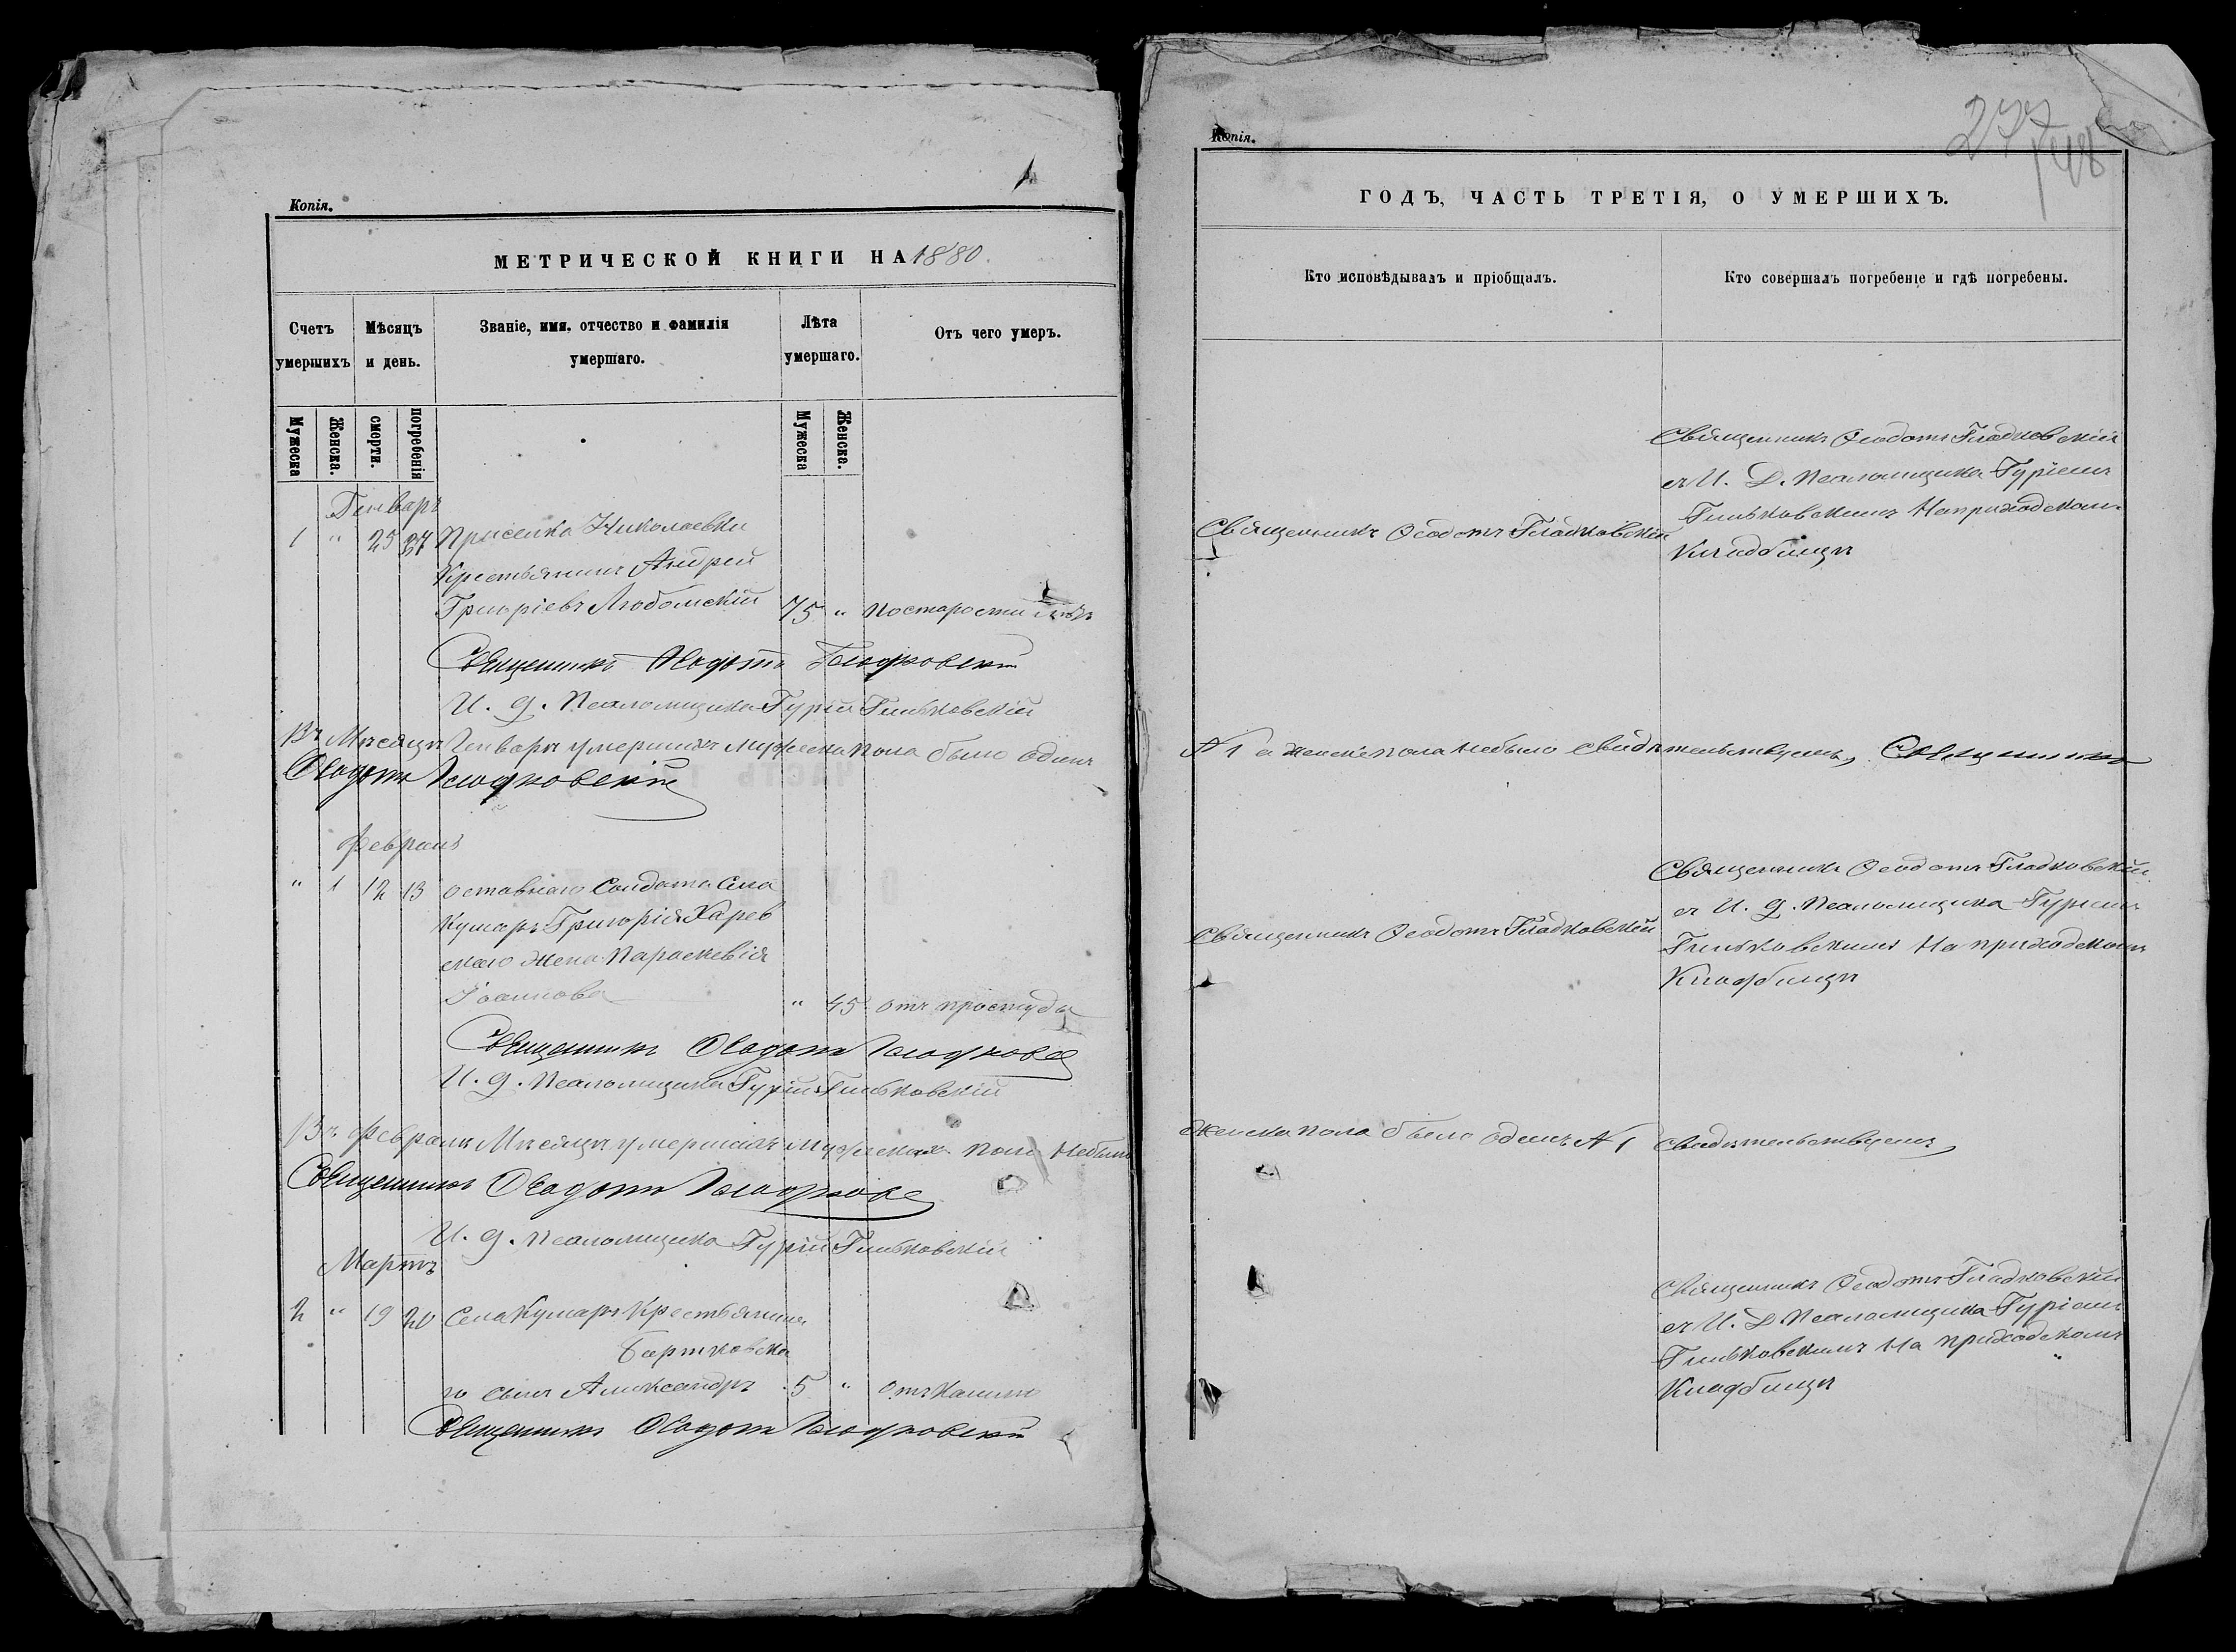 Копія.
МЕТРИЧЕСКОЙ КНИГИ НА 1880
Счетъ умершихъ
Мѣсяцъ и день.
Званіе, имя, отчество и фамилія умершаго.
Лѣта умершаго.
Отъ чего умеръ.
Мужеска
Женска.
смерти.
погребенія
Мужеска
Женска.
Генварь
1 " 25 27 Прысѣлка Николаевки
Крестьянинъ Андрей
Григоріевъ Любомскій 75 " По старости лѣтъ
Священникъ Ѳеодотъ Гладковскій
И. д. Псаломщика Гурій Гиньковскій
Въ Мѣсяцѣ Генварѣ умершихъ мужеска пола было одинъ
Ѳеодотъ Гладковскій
Февраль
" 1 12 13 оставнаго Солдата Села
Кумаръ Григорія Харев
скаго жена Параскевія
Іоаннова " 45 отъ простуды
Священникъ Ѳеодотъ Гладков
И. д. Псаломщика Гурій Гиньковскій
Въ Февралѣ Мѣсяцѣ умершихъ мужеска пола небыло
Священникъ Ѳеодотъ Гладков
И. д. Псаломщика Гурій Гиньковскій
Мартъ
2 " 19 20 Села Кумаръ Крестьянина
Бартковска
го сынъ Александръ 5 " Отъ кашлю
Священникъ Ѳеодотъ Гладковскій
Копія.
277
148
ГОДЪ, ЧАСТЬ ТРЕТІЯ, О УМЕРШИХЪ.
Кто исповѣдывалъ и пріобщалъ.
Кто совершалъ погребеніе и гдѣ погребены.
Священникъ Ѳеодотъ Гладковскій
Священникъ Ѳеодотъ Гладковскій
съ И. Д. Псаломщика Гуріемъ
Гиньковскимъ На приходскомъ
Кладбищѣ
№ 1 а женска пола небыло свидѣтельствуемъ, Священникъ
Священникъ Ѳеодотъ Гладковскій
Священникъ Ѳеодотъ Гладковскій
съ И. д. Псаломщика Гуріемъ
Гиньковскимъ На приходскомъ
Кладбищѣ
Женска пола было одинъ № 1 свидѣтельствуемъ
Священникъ Ѳеодотъ Гладковскій
съ И. Д Псаломщика Гуріемъ
Гиньковскимъ На приходскомъ
Кладбищѣ